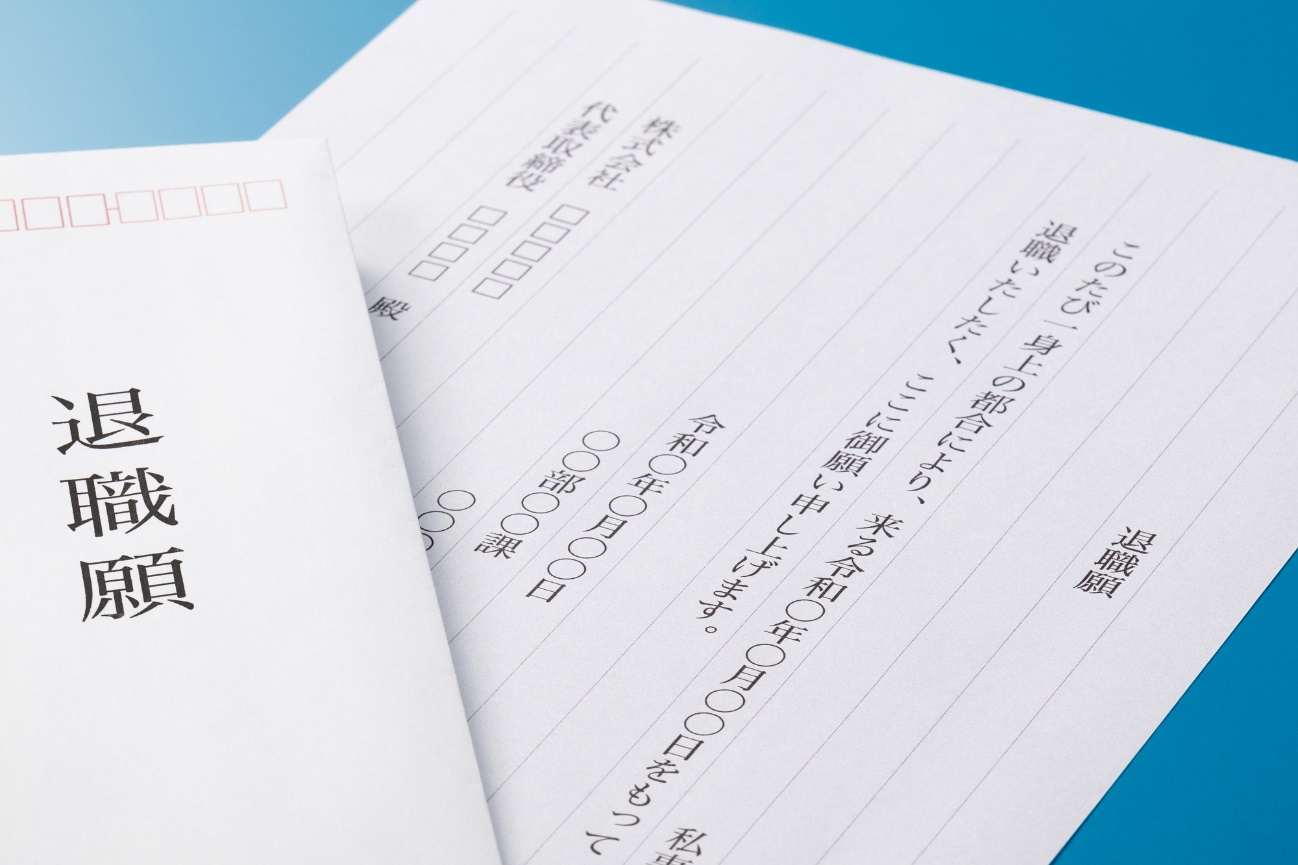 退職願
私事
このたび一身上の都合により、来る令和〇年〇月〇〇日をもって
退職いたしたく、ここに御願い申し上げます。
令和〇年〇月〇〇日
〇〇部〇〇課
〇〇〇
株式会社□□□□
代表取締役□□□□殿
退職願